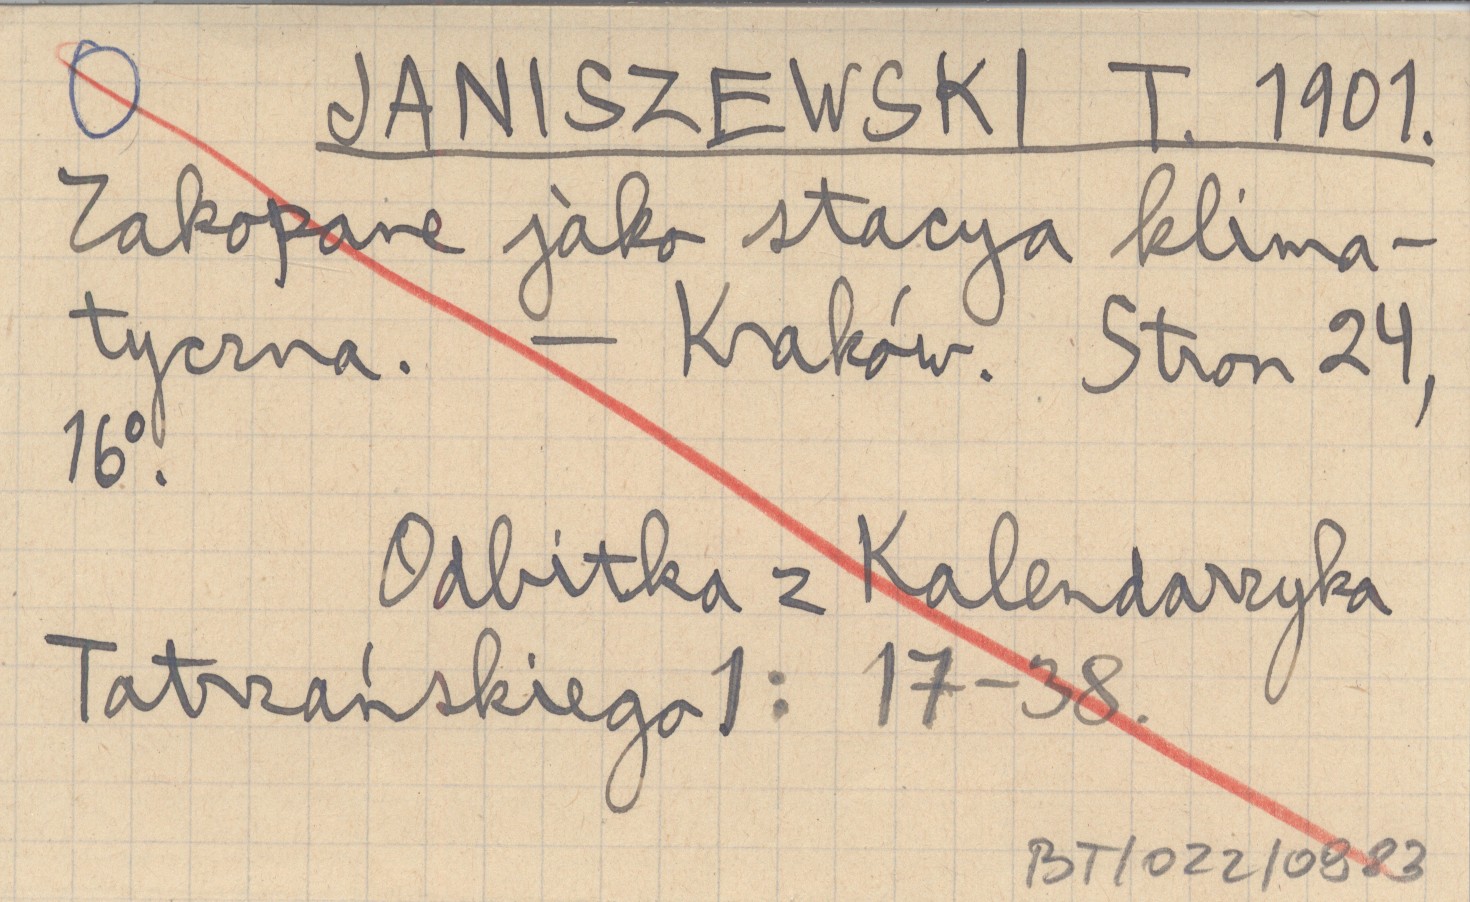 O JANISZEWSKI T. 1901.
Zakopane jako stacya klima-
tyczna. — Kraków. Stron 24,
16°.
Odbitka z Kalendarzyka
Tatrzańskiego 1: 17-38.
BT/022/0983